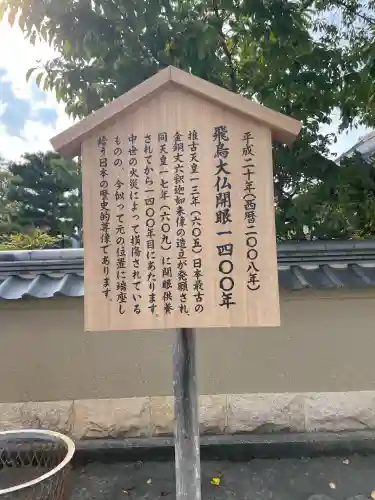 平成二十年（西暦二〇〇八年）
飛鳥大仏開眼一四〇〇年
推古天皇一三年（六〇五）日本最古の
金銅丈六釈迦如来像の造立が発願され、
同天皇一七年（六〇九）に開眼供養
されてから一四〇〇年目にあたります。
中世の火災によって損傷されている
ものの、今似って元の位置に端座し
給う日本の歴史的尊像であります。